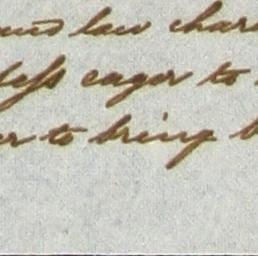 and law char
less eager to
er to bring b